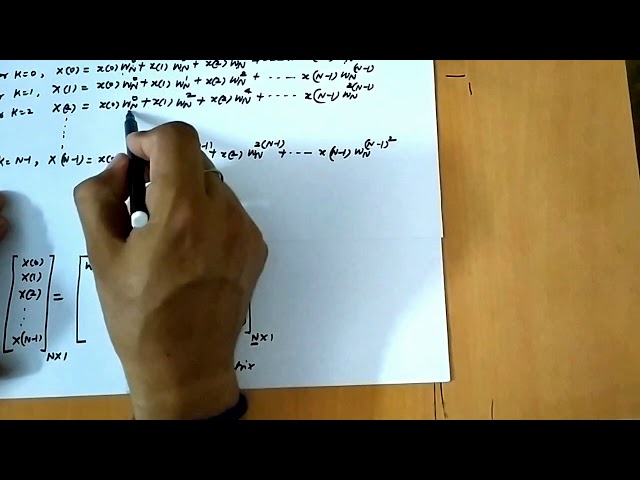 K=0, X(0) = x(0) W_N^0 + x(1) W_N^0 + x(2) W_N^0 + ..... x(N-1)
K=1, X(1) = x(0) W_N^0 + x(1) W_N^1 + x(2) W_N^2 + ..... x(N-1) W_N^(N-1)
K=2 X(2) = x(0) W_N^0 + x(1) W_N^2 + x(2) W_N^4 + ..... x(N-1) W_N^2(N-1)
K=N-1, X(N-1) = + x(2) W_N^2(N-1) + ..... x(N-1) W_N^(N-1)^2
X(0)
X(1)
X(2) =
X(N-1)
N×1
N×1